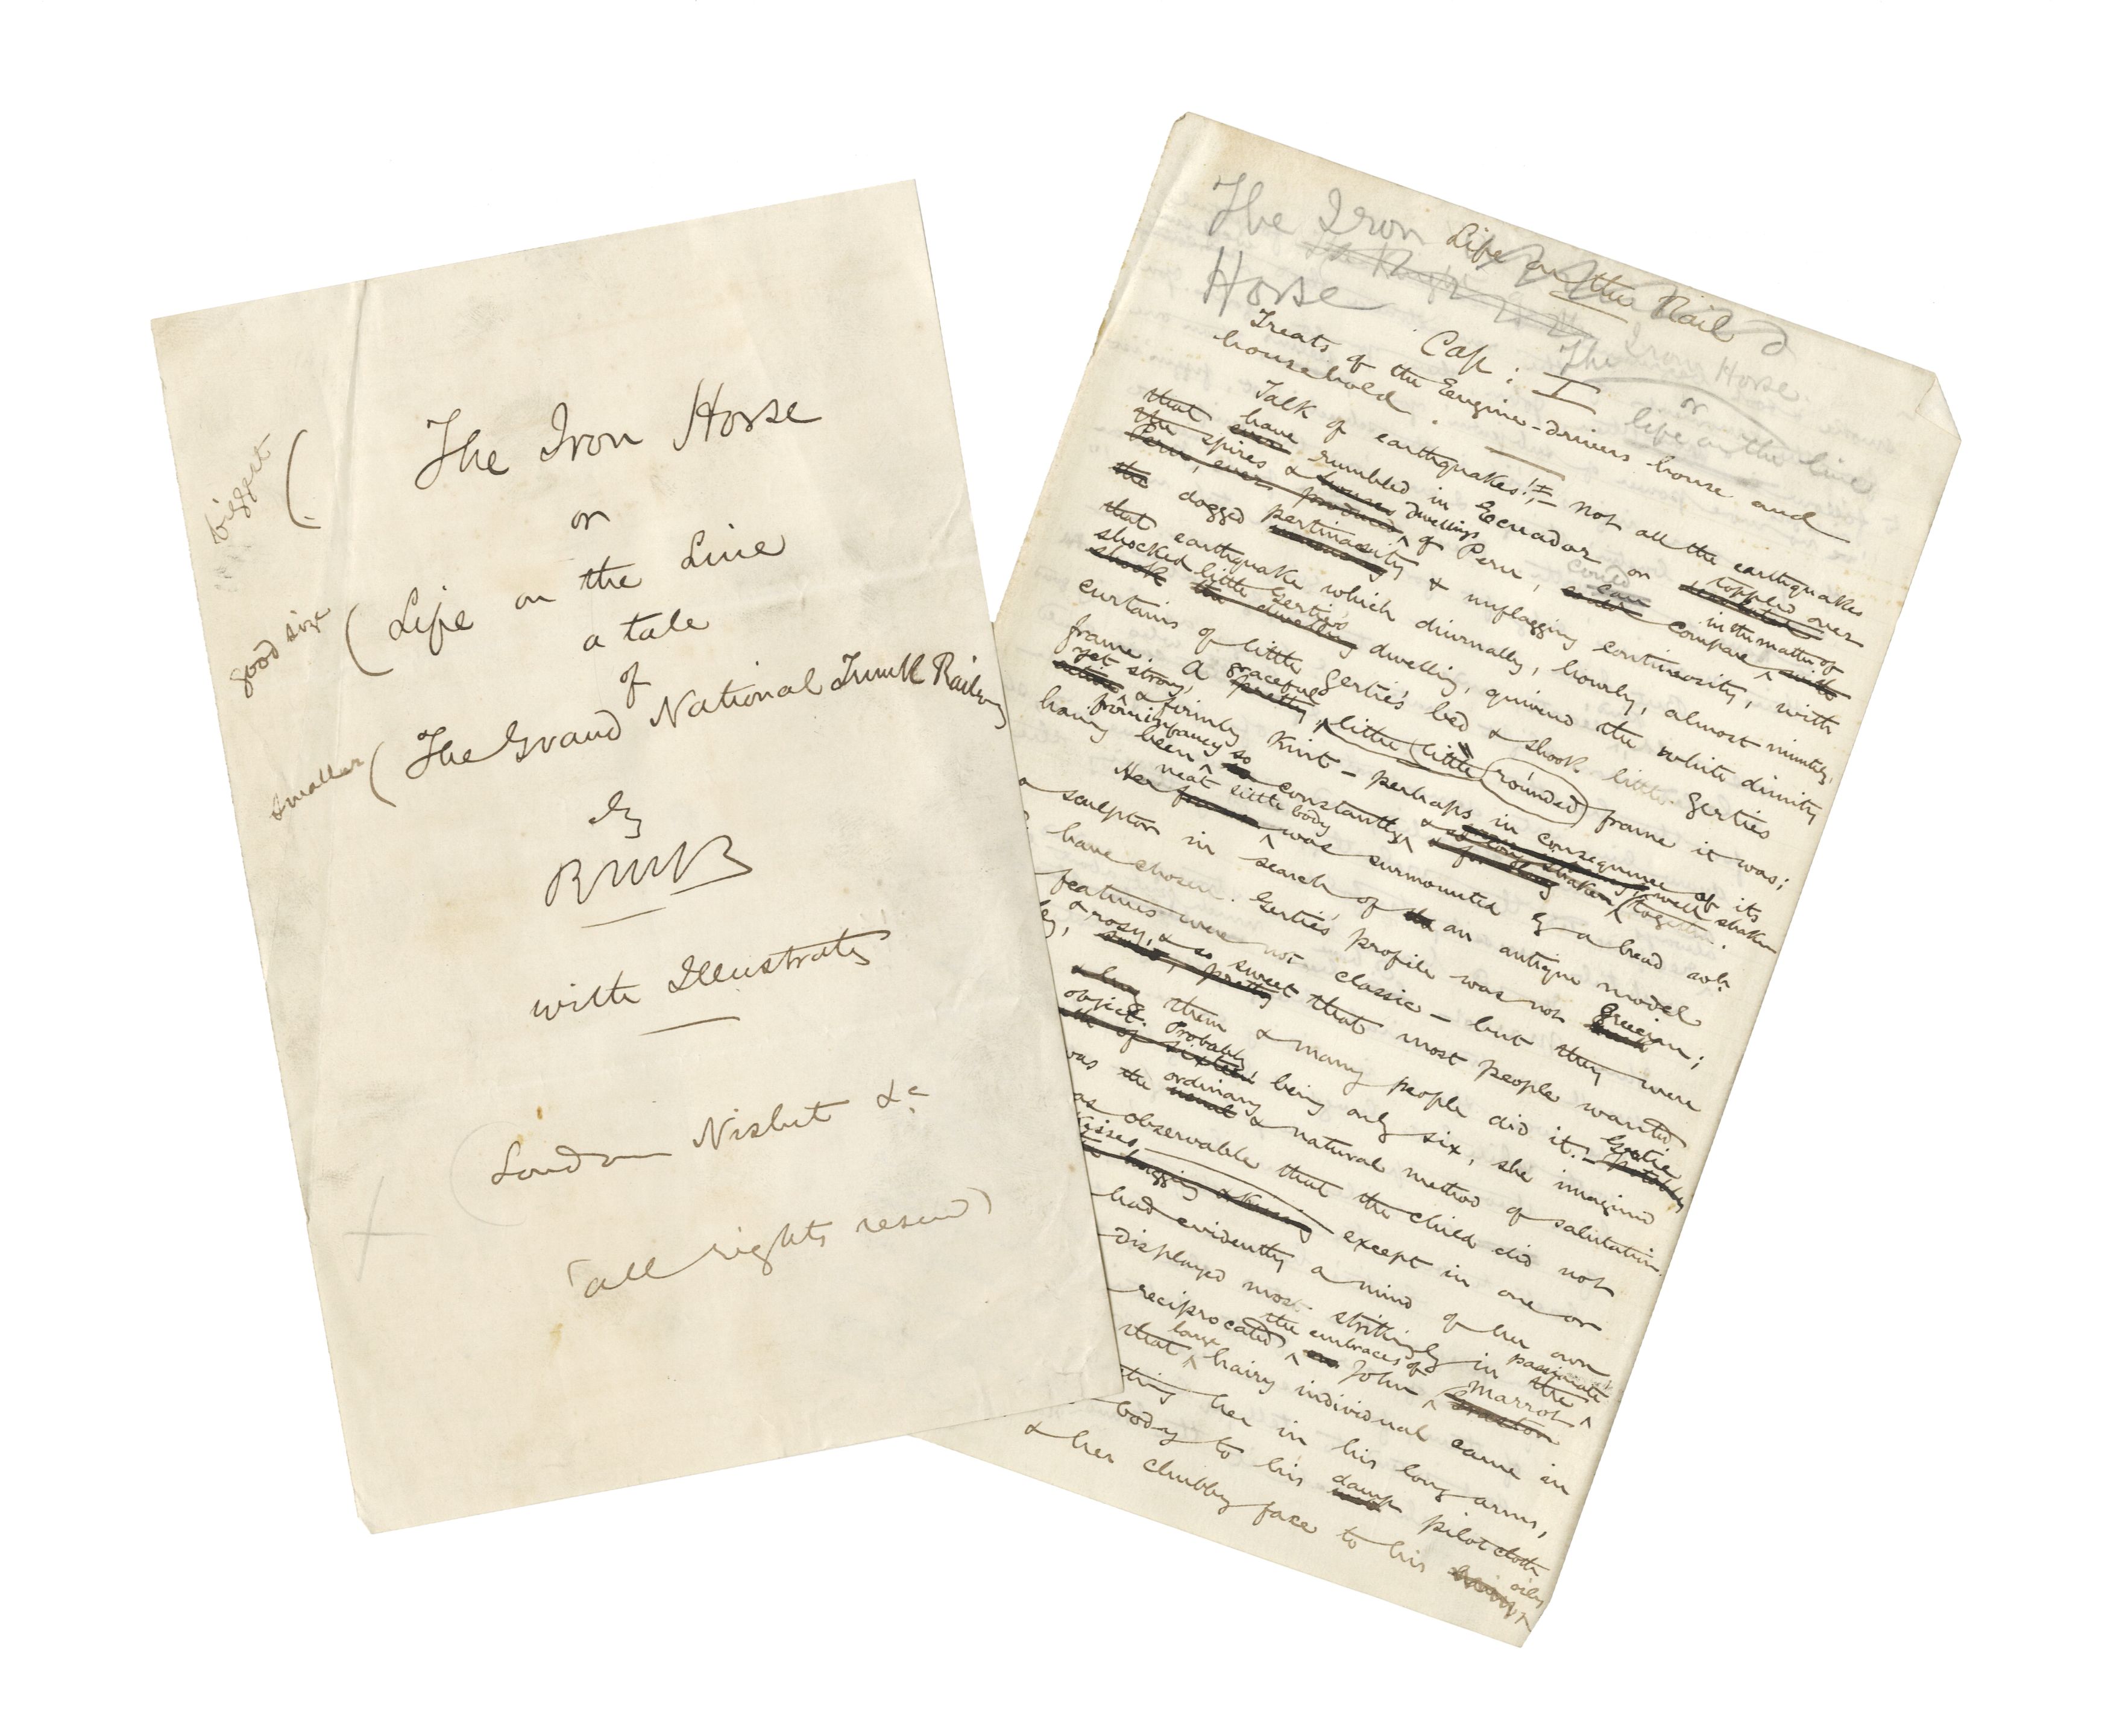 biggest ( The Iron Horse
or
good size ( Life on the Line
a tale
of
smaller ( The Grand National Trunk Railway
by
RMB
with Illustratns
London Nisbet &c
(all rights resevd)
The Iron Life on the Rail
Horse
The Iron Horse
or
life on the line
Cap: I
Treats of the Engine-drivers house and
household.
Talk of earthquakes! not all the earthquakes
that have ever rumbled in Ecuador or toppled over
the spires & houses dwellings of Peru, could compare in the matter of
Peru, ever produced
the dogged pertinacity & unflagging continuosity, with
that earthquake which diurnally, hourly, almost minutely,
shocked little Gertie's dwelling, quivered the white dimity
shook the dwelling
curtains of little Gertie's bed & shook little Gertie's
frame. A graceful pretty, little (little rounded) frame it was;
yet strong, active & firmly knit – perhaps in consequence of its
having been from infancy so constantly & well shaken together.
Her frame neat little body was surmounted by a head wh.
a sculptor in search of the an antique model
have chosen. Gertie's profile was not Grecian;
features were not classic – but they were
& rosy, & so sweet that most people wanted
pretty
& hug them & many people did it. Gertie
object. Probably being only six, she imagined
of sixteen
was the ordinary usual & natural method of salutation.
as observable that the child did not
kisses, hugging & kissing except in one or
had evidently a mind of her own
displayed most strikingly in the passionate
reciprocated the embraces of John Marrot
that large hairy individual came in
ting her in his long arms,
body to his damp pilotcloth
& her chubby face to his oily